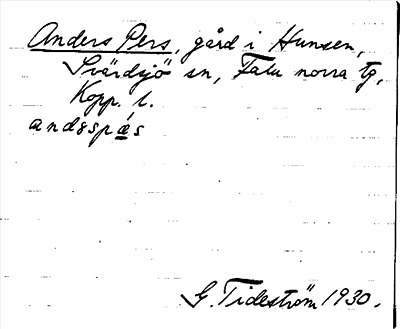 Anders Pers, gård i Hunsen,
Svärdsjö sn, Falu norra tg,
Kopp. l.
andspás
G. Tideström 1930.